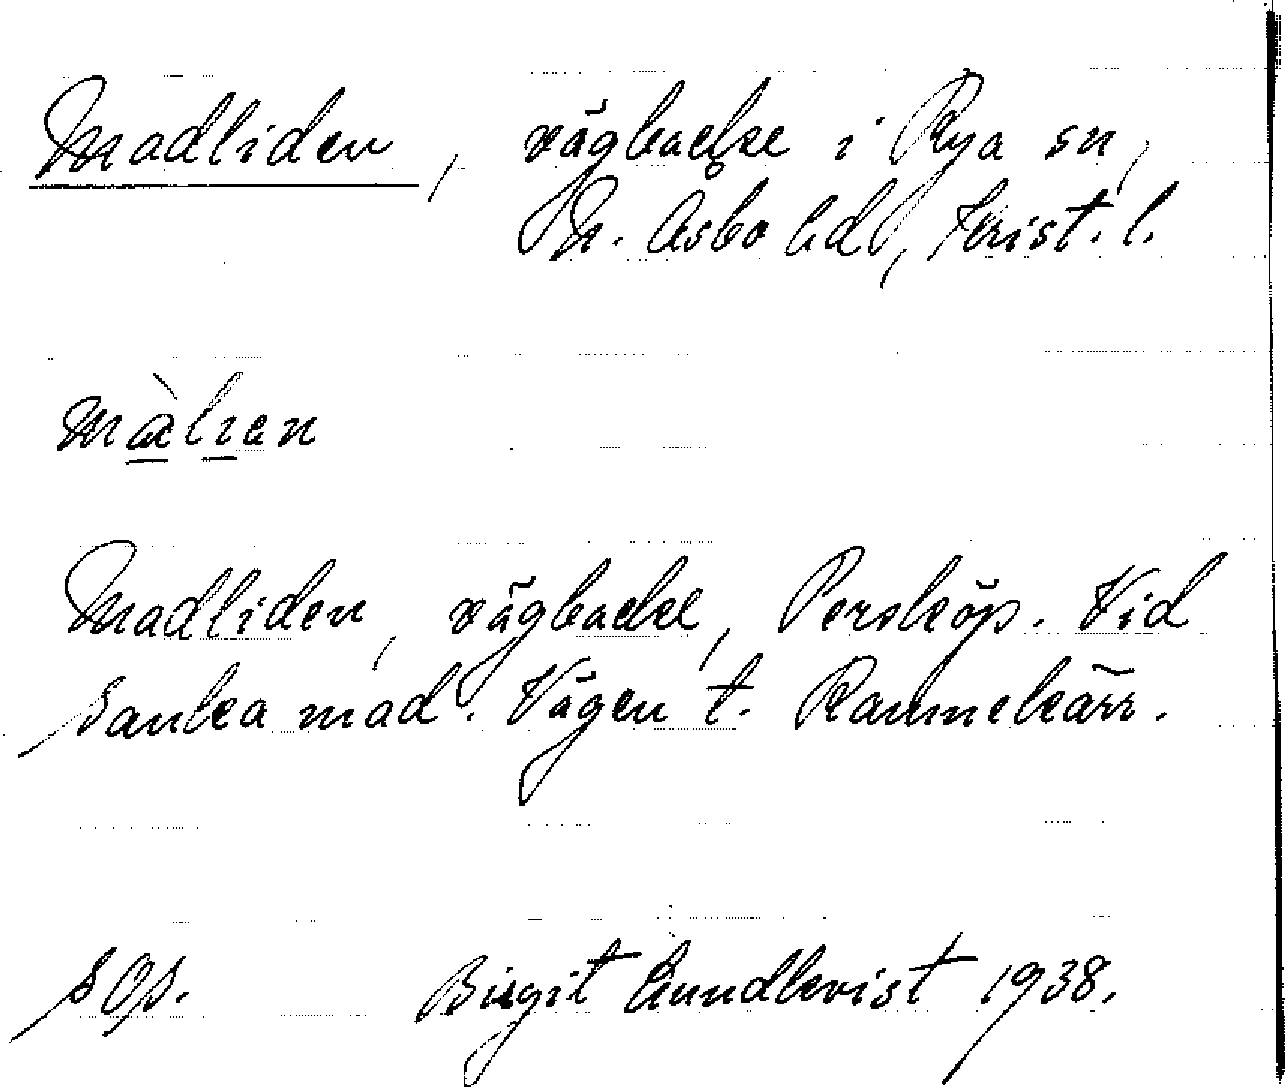 Madliden, vägbacke i Rya sn,
N. Åsbo hd, Krist. l.
Madliden, vägbacke, Persköp. Vid
sanka mad. Vägen t. Rammekärr.
sOp. Birgit Lundkvist 1938.